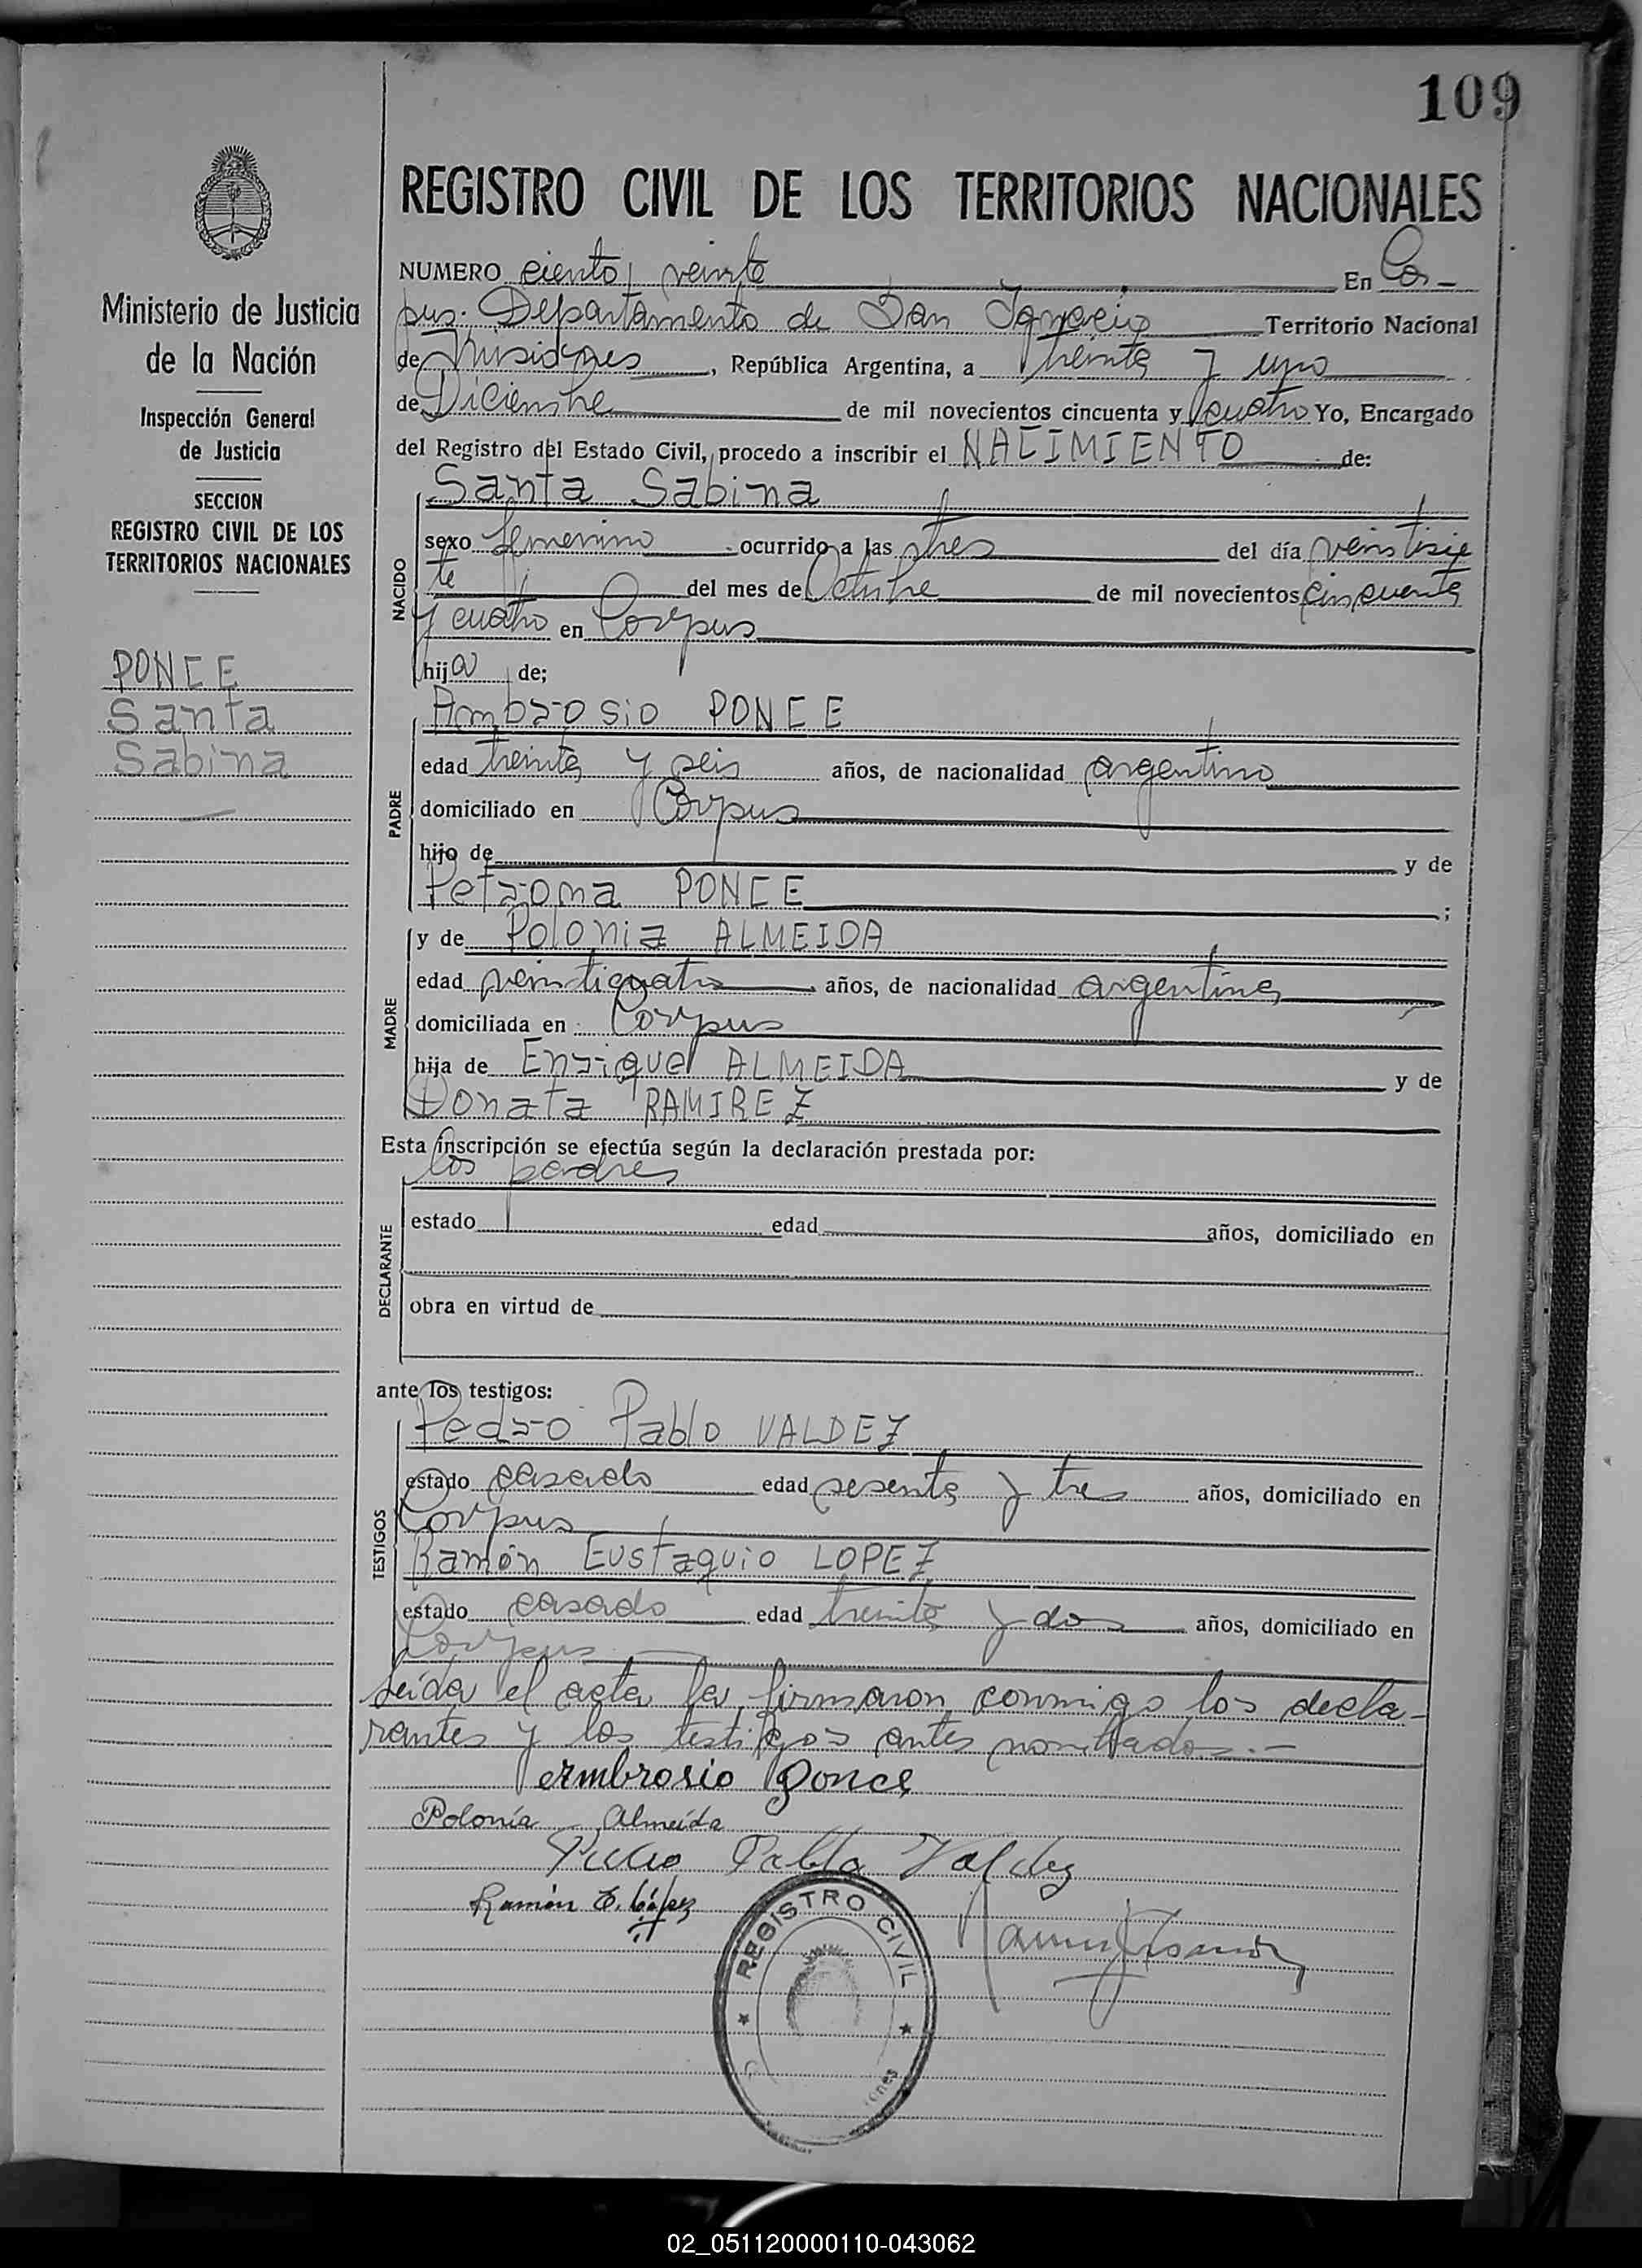 109
REGISTRO CIVIL DE LOS TERRITORIOS NACIONALES
Ministerio de Justicia
de la Nación
Inspección General
de Justicia
SECCION
REGISTRO CIVIL DE LOS
TERRITORIOS NACIONALES
PONCE
Santa
Sabina
NUMERO ciento veinte En Cor-
pus. Departamento de San Ignacio Territorio Nacional
de Misiones, República Argentina, a treinta y uno
de Diciembre de mil novecientos cincuenta y cuatro Yo, Encargado
del Registro del Estado Civil, procedo a inscribir el NACIMIENTO de:
NACIDO
Santa Sabina
sexo femenino ocurrido a las tres del día veintisie
te del mes de Octubre de mil novecientos cincuenta
y cuatro en Corpus
hija de;
PADRE
Ambrosio PONCE
edad treinta y seis años, de nacionalidad argentino
domiciliado en Corpus
hijo de y de
Petrona PONCE ;
MADRE
y de Polonia ALMEIDA
edad veinticuatro años, de nacionalidad argentina
domiciliada en Corpus
hija de Enrique ALMEIDA y de
Donata RAMIREZ
Esta inscripción se efectúa según la declaración prestada por:
DECLARANTE
los padres
estado edad años, domiciliado en
obra en virtud de
ante los testigos:
TESTIGOS
Pedro Pablo VALDEZ
estado casado edad sesenta y tres años, domiciliado en
Corpus
Ramón Eustaquio LOPEZ
estado casado edad treinta y dos años, domiciliado en
Corpus
Leída el acta la firmaron conmigo los decla-
rantes y los testigos antes nombrados.-
Ambrosio Ponce
Polonia Almeida
Pedro Pablo Valdez
Ramón E. López
REGISTRO CIVIL
02_051120000110-043062